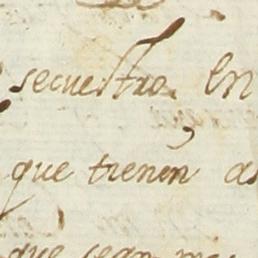 secuestre. En
que tienen as
que sean